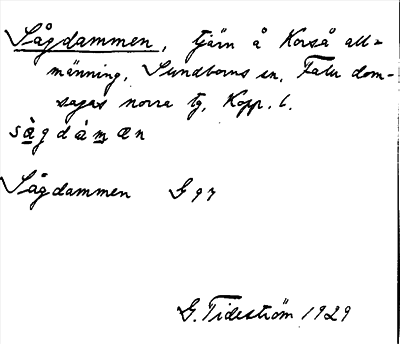 Sågdammen, tjärn å Korså all=
männing, Sundborns sn, Falu dom-
sagas norra tg, Kopp. l.
sàgdàmæn
Sågdammen G 97
G. Tideström 1929